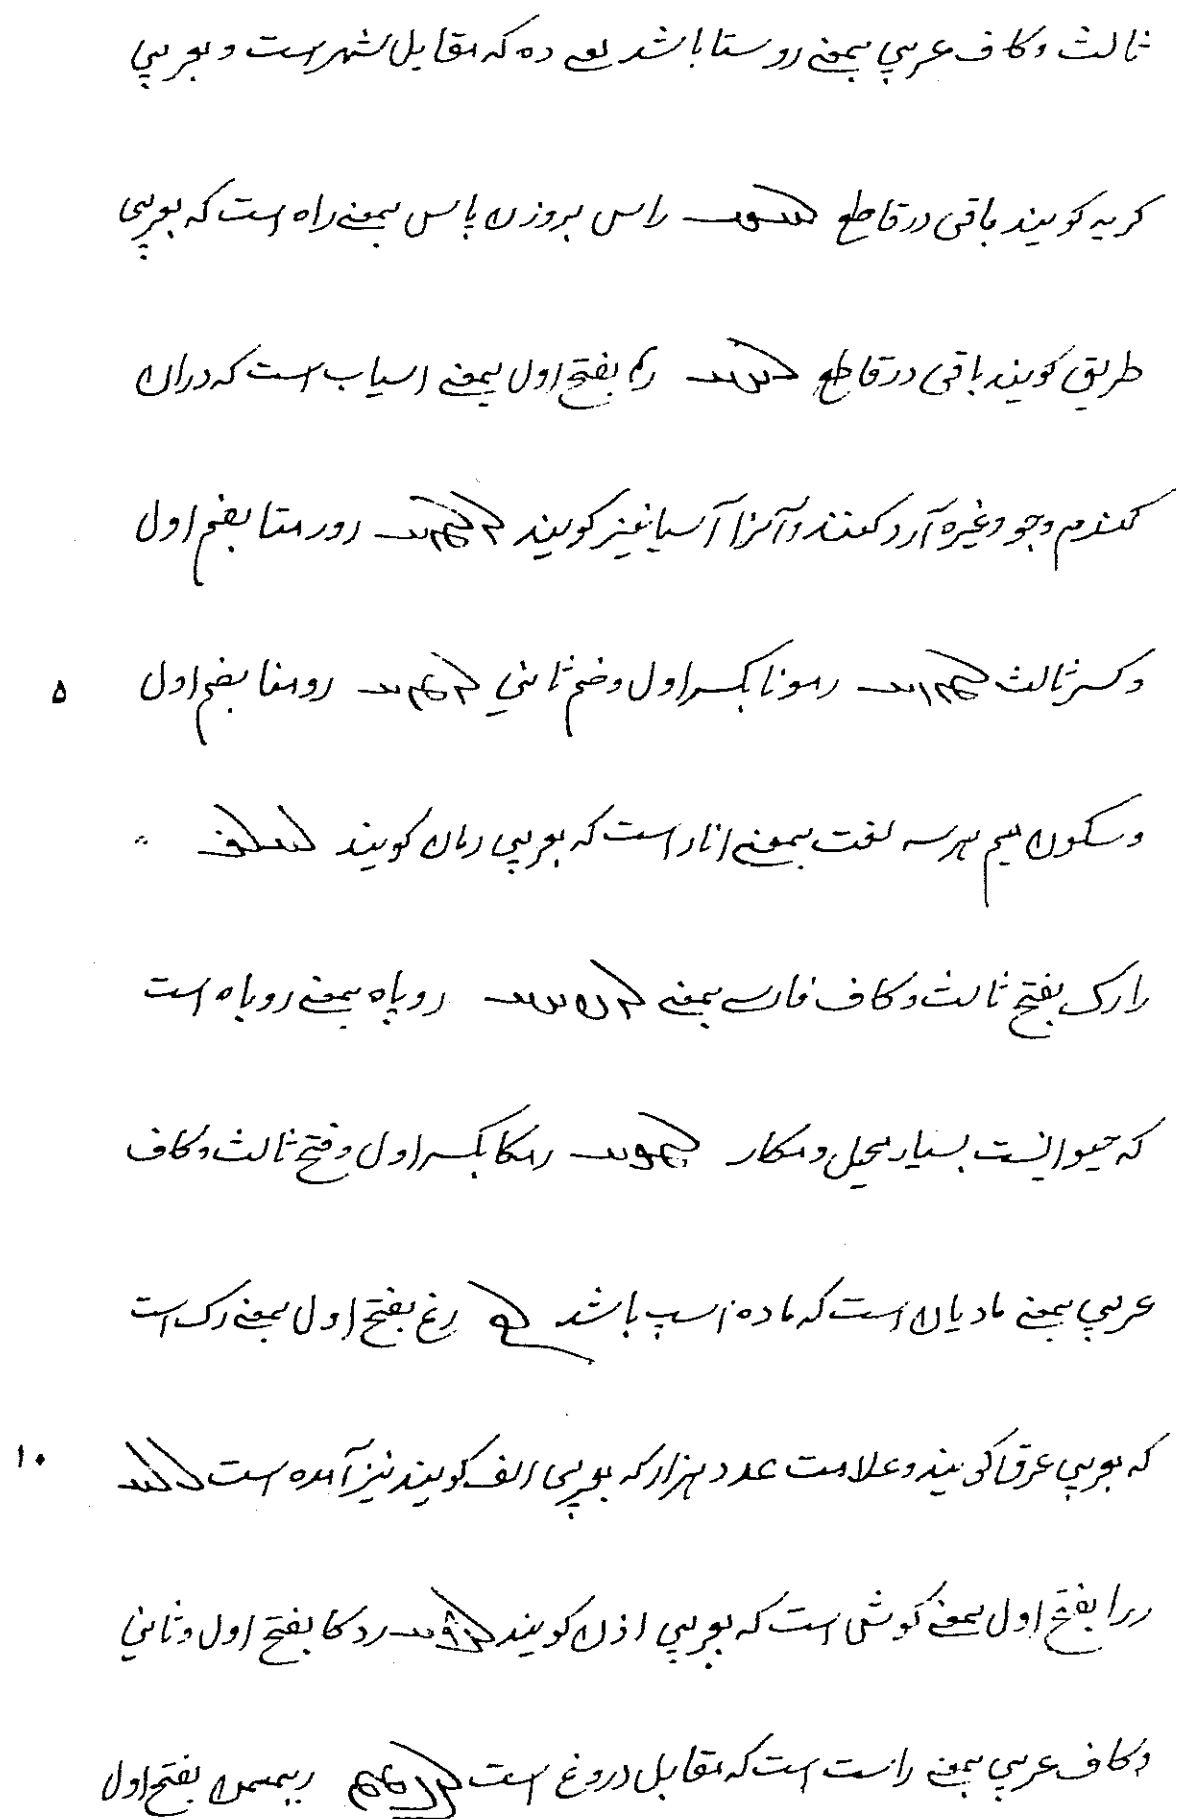 ثالث و کاف عربي بمعنے روستا باشد یعے ده که مقابل شهر است و بعربي
کریه کویند باقی در قاطع راس بروزن پاس بمعنے راه است که بعربی
طریق کویند باقی در قاطع بفتح اول بمعنے اسیاب است که دران
کندم و جو وغیره آرد کنند و آنرا آسیا نیز کویند رورمنا بضم اول
۵ و کسر ثالث رمونا بکسر اول و ضم ثاني رومنا بضم اول
و سکون میم هر سه لغت بمعنے انار است که بعربي رمان کویند
رارک بفتح ثالث و کاف فارسے بمعنے روپاه بمعنے روباه است
که حیوانیست بسیار محیل و مکار رمکا بکسر اول و فتح ثالث و کاف
عربي بمعنے مادیان است که ماده اسپ باشد رغ بفتح اول بمعنے رک است
۱۰ که بعربي عرق کویند و علامت عدد هزار که بعربی الف کویند نیز آمده است
ررا بفتح اول بمعنے کوش است که بعربي اذن کویند ردکا بفتح اول و ثاني
و کاف عربي بمعنے راست است که مقابل دروغ است بفتح اول